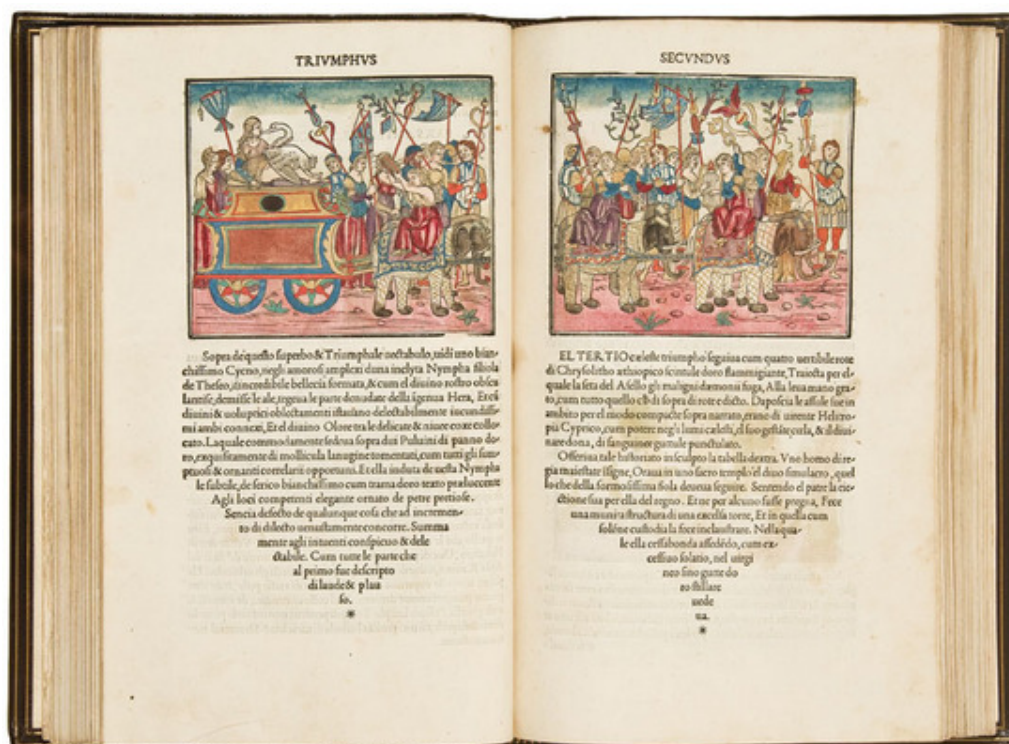 TRIVMPHVS
Sopra de questo superbo & Triumphale uectabulo, uidi uno bian-
chissimo Cycno, negli amorosi amplexi duna inclyta Nympha filiola
de Theseo, dincredibile bellecia formata, & cum el diuino rostro obscu
lantise, demisse le ale, tegeua le parte denudate della igenua Hera, Et cũ
diuini & uoluptici oblectamenti istauano delectabilmente iucundissi-
mi ambi connexi, Et el diuino Olore tra le delicate & niuee coxe collo-
cato. Laquale commodamente sedeua sopra dui Puluini di panno do-
ro, exquisitamente di mollicula lanugine tomentati, cum tutti gli sum-
ptuosi & ornanti correlarii opportuni. Et ella induta de uesta Nympha
le subtile, de serico bianchissimo cum trama doro texto præluccente
Agli loci competenti elegante ornato de petre pretiose.
Sencia defecto de qualunque cosa che ad incremen-
to di dilecto uenustamente concorre. Summa
mente agli intuenti conspicuo & dele
ctabile. Cum tutte le parte che
al primo fue descripto
di laude & plau
so.
*
SECVNDVS
EL TERTIO cæleste triumpho seguiua cum quatro uertibile rote
di Chrysolitho æthiopico scintule doro flammigiante, Traiecta per el-
quale la seta del Asello gli maligni dæmonii fuga, Alla leua mano gra-
to, cum tutto quello cħ di sopra di rote e dicto. Daposcia le assule sue in
ambito per el modo compacte sopra narrato, erano di uirente Helitro-
pia Cyprico, cum potere negli lumi cælesti, el suo gestãte cœla, & il diui-
nare dona, di sanguinee guttule punctulato.
Offeriua tale historiato insculpto la tabella dextra. Vno homo di re-
gia maiestate isigne, Oraua in uno sacro templo el diuo simulacro, quel
lo che della formosissima fiola deueua seguire. Sentendo el patre la eie-
ctione sua per ella del regno. Et ne per alcuno fusse pregna, Fece
una munita structura di una excelsa torre, Et in quella cum
solẽne custodia la fece inclaustrare. Nella qua-
le ella cessabonda assedẽdo, cum ex-
cessiuo solatio, nel uirgi
neo sino gutte do
ro stillare
uede
ua.
*